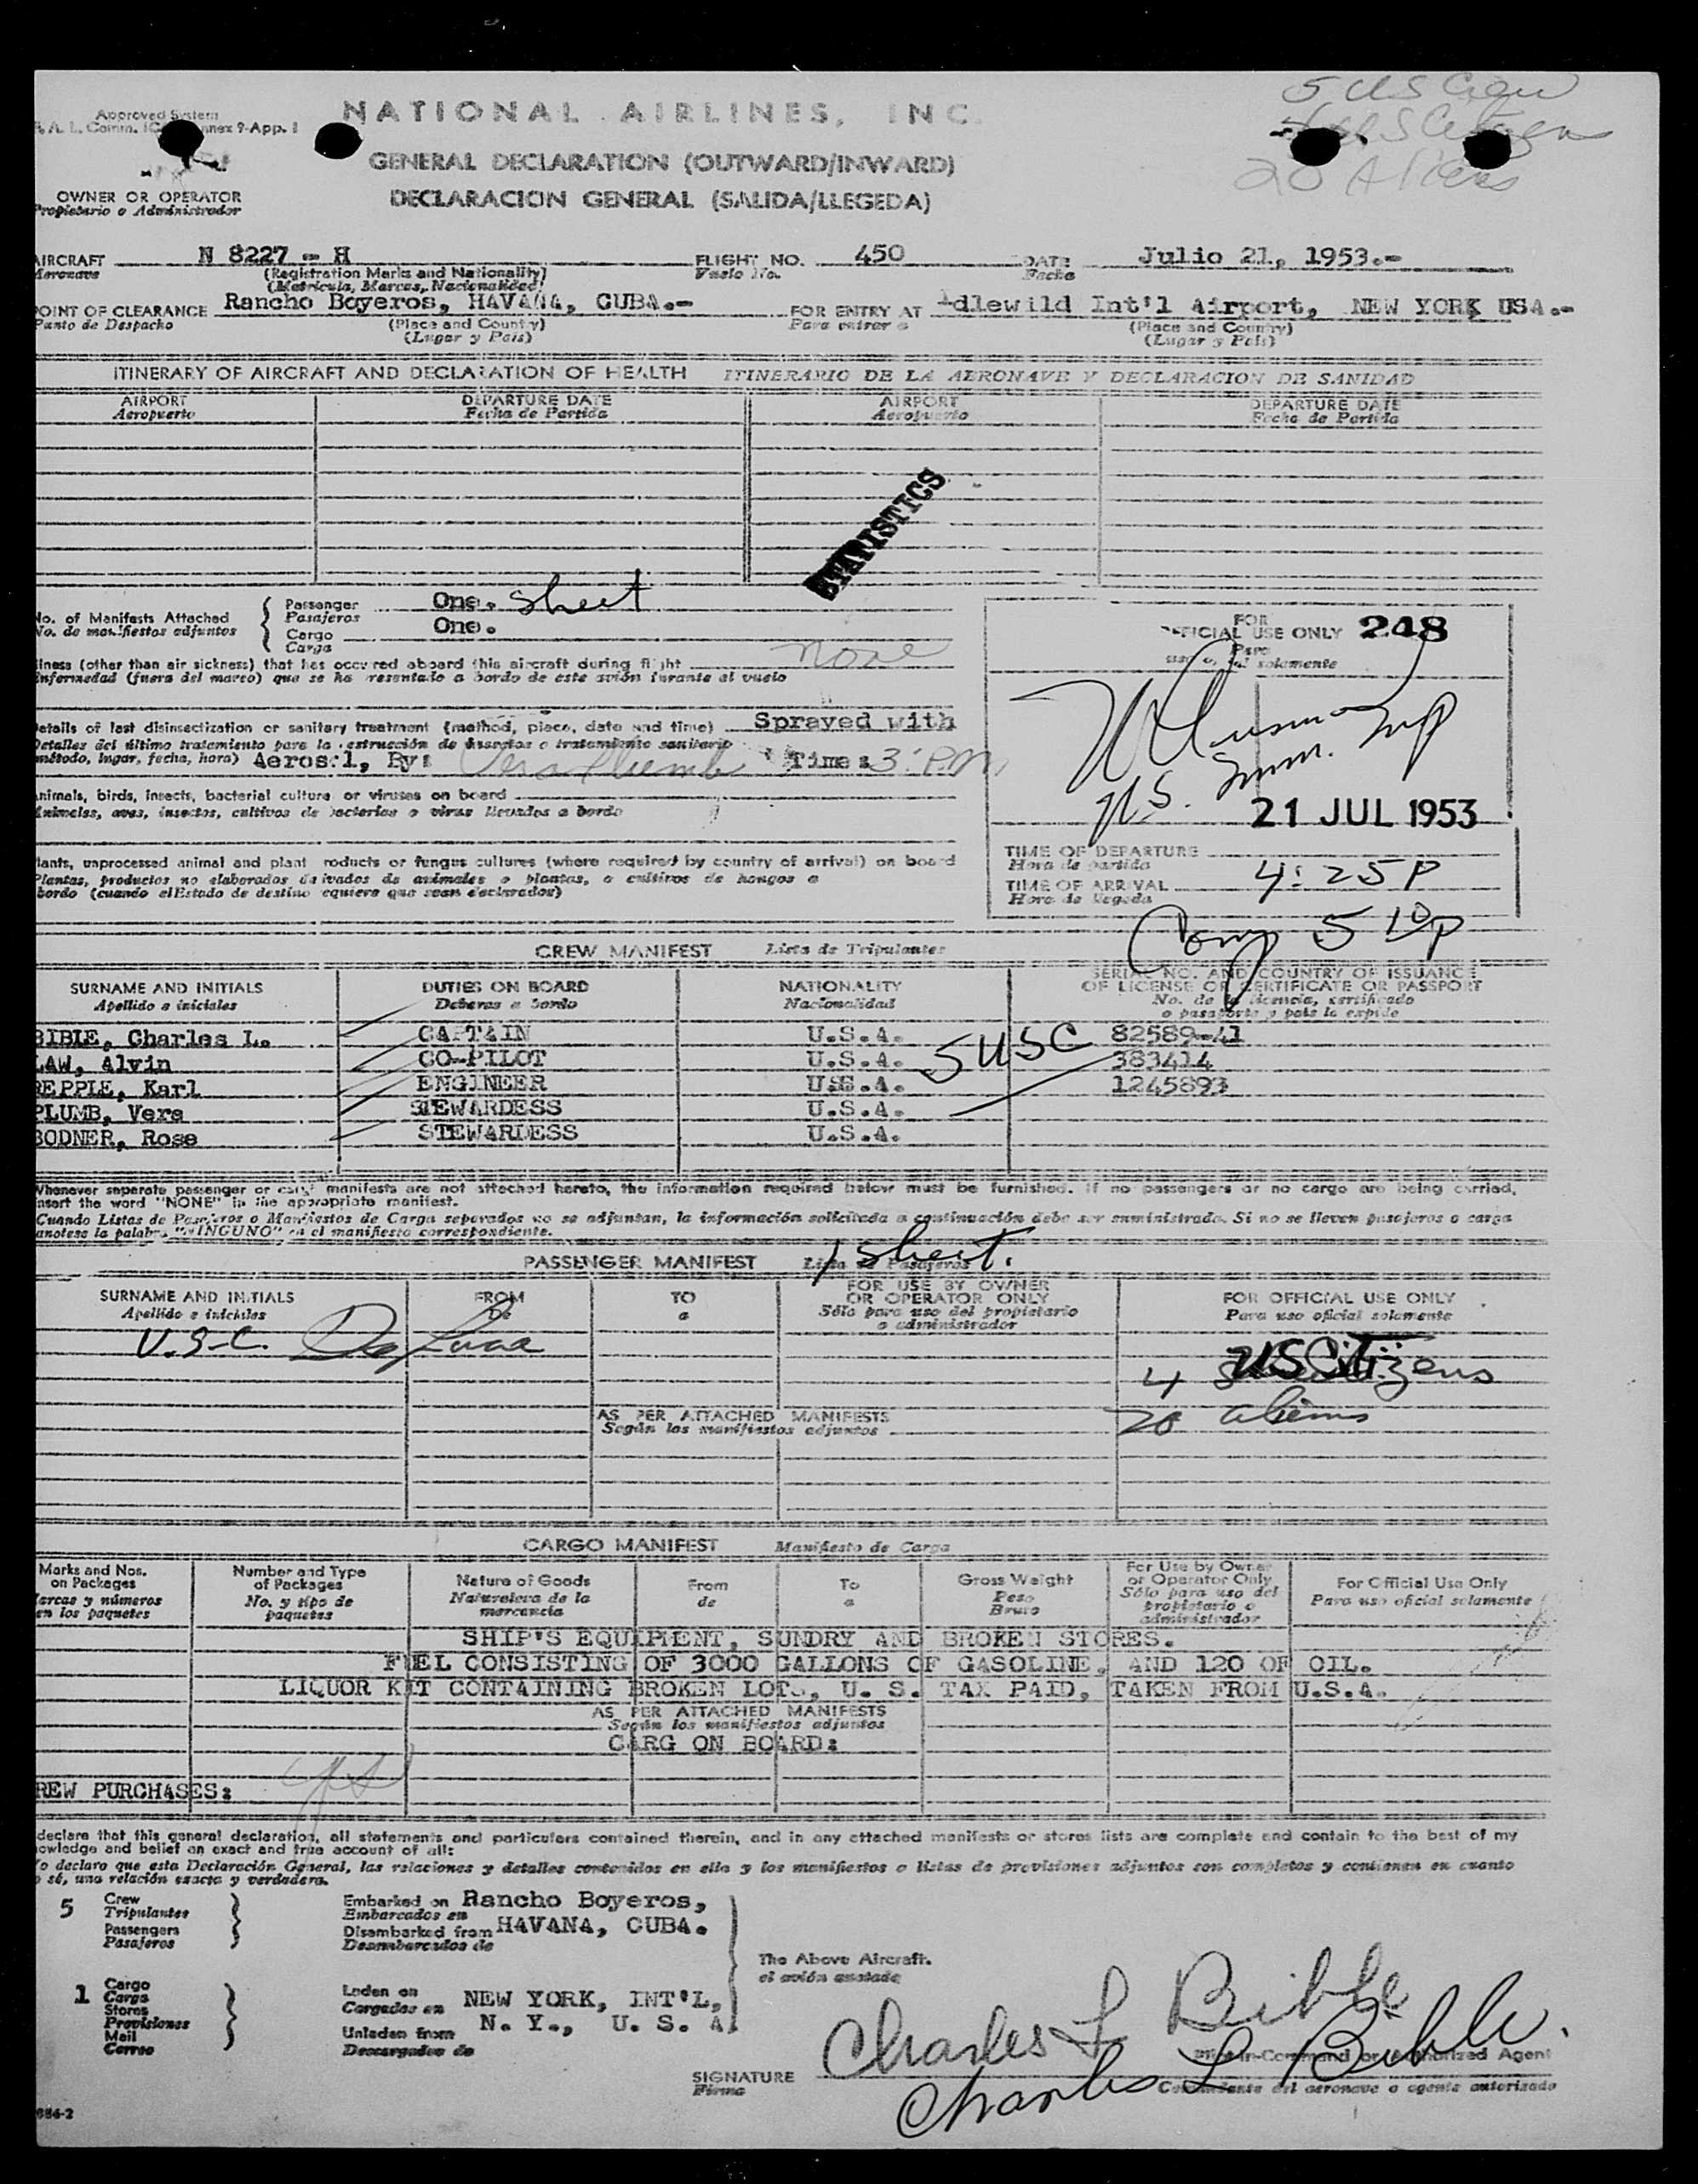 5 US Crew
US Citizens
20 Aliens
Approved System
NATIONAL AIRLINES, INC.
Annex 9-App. 1
GENERAL DECLARATION (OUTWARD/INWARD)
DECLARACION GENERAL (SALIDA/LLEGEDA)
OWNER OR OPERATOR
Propietario o Administrador
AIRCRAFT N 8227 - H FLIGHT NO. 450 DATE Julio 21, 1953.-
Aeronave (Registration Marks and Nationality) Vuelo No. Fecha
(Matricula, Marcas, Nacionalidad)
POINT OF CLEARANCE Rancho Boyeros, HAVANA, CUBA.- FOR ENTRY AT Idlewild Int'l Airport, NEW YORK USA.-
Punto de Despacho (Place and Country) Para entrar a (Place and Country)
(Lugar y Pais) (Lugar y Pais)
ITINERARY OF AIRCRAFT AND DECLARATION OF HEALTH ITINERARIO DE LA AERONAVE Y DECLARACION DE SANIDAD
AIRPORT DEPARTURE DATE AIRPORT DEPARTURE DATE
Aeropuerto Fecha de Partida Aeropuerto Fecha de Partida
STATISTICS
No. of Manifests Attached Passenger One. Sheet
No. de manifiestos adjuntos Pasajeros
Cargo One.
Carga
FOR
OFFICIAL USE ONLY 248
Para
uso oficial solamente
Illness (other than air sickness) that has occured aboard this aircraft during flight none
Enfermedad (fuera del mareo) que se ha presentado a bordo de este avión durante el vuelo
Details of last disinsectization or sanitary treatment (method, place, date and time) Sprayed with
Detalles del último tratamiento para la destrucción de insectos o tratamiento sanitario
método, lugar, fecha, hora) Aerosol, By: Vera Plumb Time: 3: P.M.
U.S. Imm. Insp
21 JUL 1953
Animals, birds, insects, bacterial culture or viruses on board
Animales, aves, insectos, cultivos de bacterias o virus llevados a bordo
Plants, unprocessed animal and plant products or fungus cultures (where required by country of arrival) on board
Plantas, productos no elaborados derivados de animales o plantas, o cultivos de hongos a
bordo (cuando el Estado de destino requiera que sean declarados)
TIME OF DEPARTURE
Hora de partida
TIME OF ARRIVAL 4:25P
Hora de llegada
5 10 P
CREW MANIFEST Lista de Tripulantes
SURNAME AND INITIALS DUTIES ON BOARD NATIONALITY SERIAL NO. AND COUNTRY OF ISSUANCE
OF LICENSE OR CERTIFICATE OR PASSPORT
Apellido e iniciales Deberes a bordo Nacionalidad No. de la licencia, certificado
o pasaporte y pais la expide
BIBLE, Charles L. CAPTAIN U.S.A. 82589-41
LAW, Alvin CO-PILOT U.S.A. 5 USC 383414
REPPLE, Karl ENGINEER USS.A. 1245893
PLUMB, Vera STEWARDESS U.S.A.
BODNER, Rose STEWARDESS U.S.A.
Whenever seperate passenger or cargo manifests are not attached hereto, the information required below must be furnished. If no passengers or no cargo are being carried,
insert the word "NONE" in the appropriate manifest.
Cuando Listas de Pasajeros o Manifiestos de Carga separados no se adjuntan, la información solicitada a continuación debe ser suministrada. Si no se lleven pasajeros o carga
anotese la palabra "NINGUNO" en el manifiesto correspondiente.
PASSENGER MANIFEST Lista de Pasajeros 1 Sheet.
SURNAME AND INITIALS FROM TO FOR USE BY OWNER
OR OPERATOR ONLY FOR OFFICIAL USE ONLY
Apellido e iniciales De a Sólo para uso del propietario
o administrador Para uso oficial solamente
U.S.C.
4 US Citizens
20 aliens
AS PER ATTACHED MANIFESTS
Según los manifiestos adjuntos
CARGO MANIFEST Manifiesto de Carga
Marks and Nos.
on Packages
Marcas y números
en los paquetes
Number and Type
of Packages
No. y tipo de
paquetes
Nature of Goods
Naturaleza de la
mercancia
From
de
To
a
Gross Weight
Peso
Bruto
For Use by Owner
or Operator Only
Sólo para uso del
propietario o
administrador
For Official Use Only
Para uso oficial solamente
SHIP'S EQUIPMENT, SUNDRY AND BROKEN STORES.
FUEL CONSISTING OF 3000 GALLONS OF GASOLINE, AND 120 OF OIL.
LIQUOR KIT CONTAINING BROKEN LOTS, U. S. TAX PAID, TAKEN FROM U.S.A.
AS PER ATTACHED MANIFESTS
Según los manifiestos adjuntos
CARG ON BOARD:
REW PURCHASES:
declare that this general declaration, all statements and particulars contained therein, and in any attached manifests or stores lists are complete and contain to the best of my
knowledge and belief an exact and true account of all:
Yo declaro que esta Declaración General, las relaciones y detalles contenidos en ella y los manifiestos o listas de provisiones adjuntos son completos y contienen en cuanto
o sé, una relación exacta y verdadera.
5 Crew
Tripulantes
Passengers
Pasajeros
Embarked on Rancho Boyeros,
Embarcados en
Disembarked from HAVANA, CUBA.
Desembarcados de
The Above Aircraft.
el avión anotado
1 Cargo
Carga
Stores
Provisiones
Mail
Correo
Laden on NEW YORK, INT'L,
Cargados en
Unladen from N. Y., U. S. A.
Descargados de
Charles L Bible
SIGNATURE
Firma
Pilot-in-Command or Authorized Agent
Charles L Bible.
Comandante del aeronave o agente autorizado
684-2